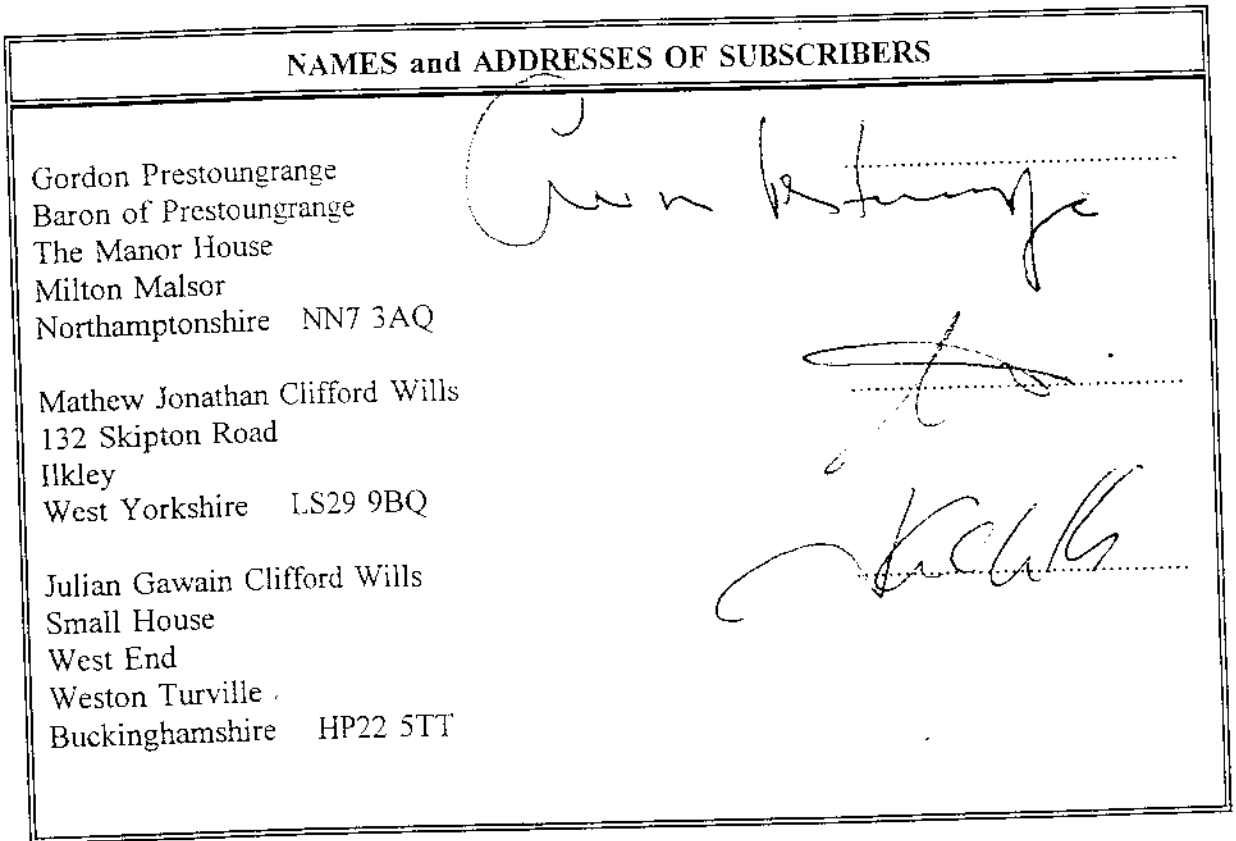 NAMES and ADDRESSES OF SUBSCRIBERS
Gordon Prestoungrange
Baron of Prestoungrange
The Manor House
Milton Malsor
Northamptonshire NN7 3AQ
Mathew Jonathan Clifford Wills
132 Skipton Road
Ilkley
West Yorkshire LS29 9BQ
Julian Gawain Clifford Wills
Small House
West End
Weston Turville
Buckinghamshire HP22 5TT